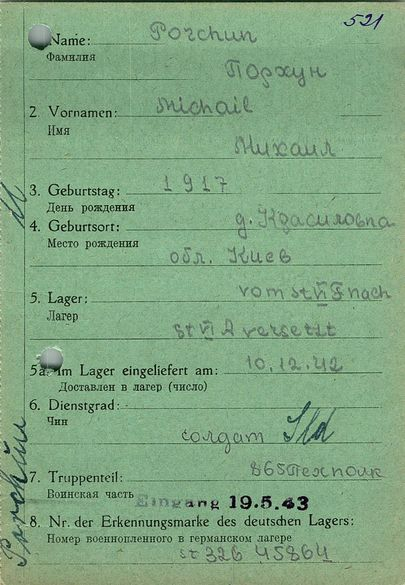 521
Name: Porchun
Фамилия
Порхун
2. Vornamen: Michail
Имя
Михаил
3. Geburtstag: 1917
День рождения
4. Geburtsort: д. Красиловка
Место рождения
обл. Киев
5. Lager: vom St VI F nach
Лагер
St VI A versetzt
5a. Im Lager eingeliefert am: 10.12.42
Доставлен в лагер (число)
6. Dienstgrad:
Чин
солдат Sld
7. Truppenteil: 865 Пехполк
Воинская часть Eingang 19.5.43
8. Nr. der Erkennungsmarke des deutschen Lagers:
Номер военнопленного в германском лагере
St 326 45864
Porchun